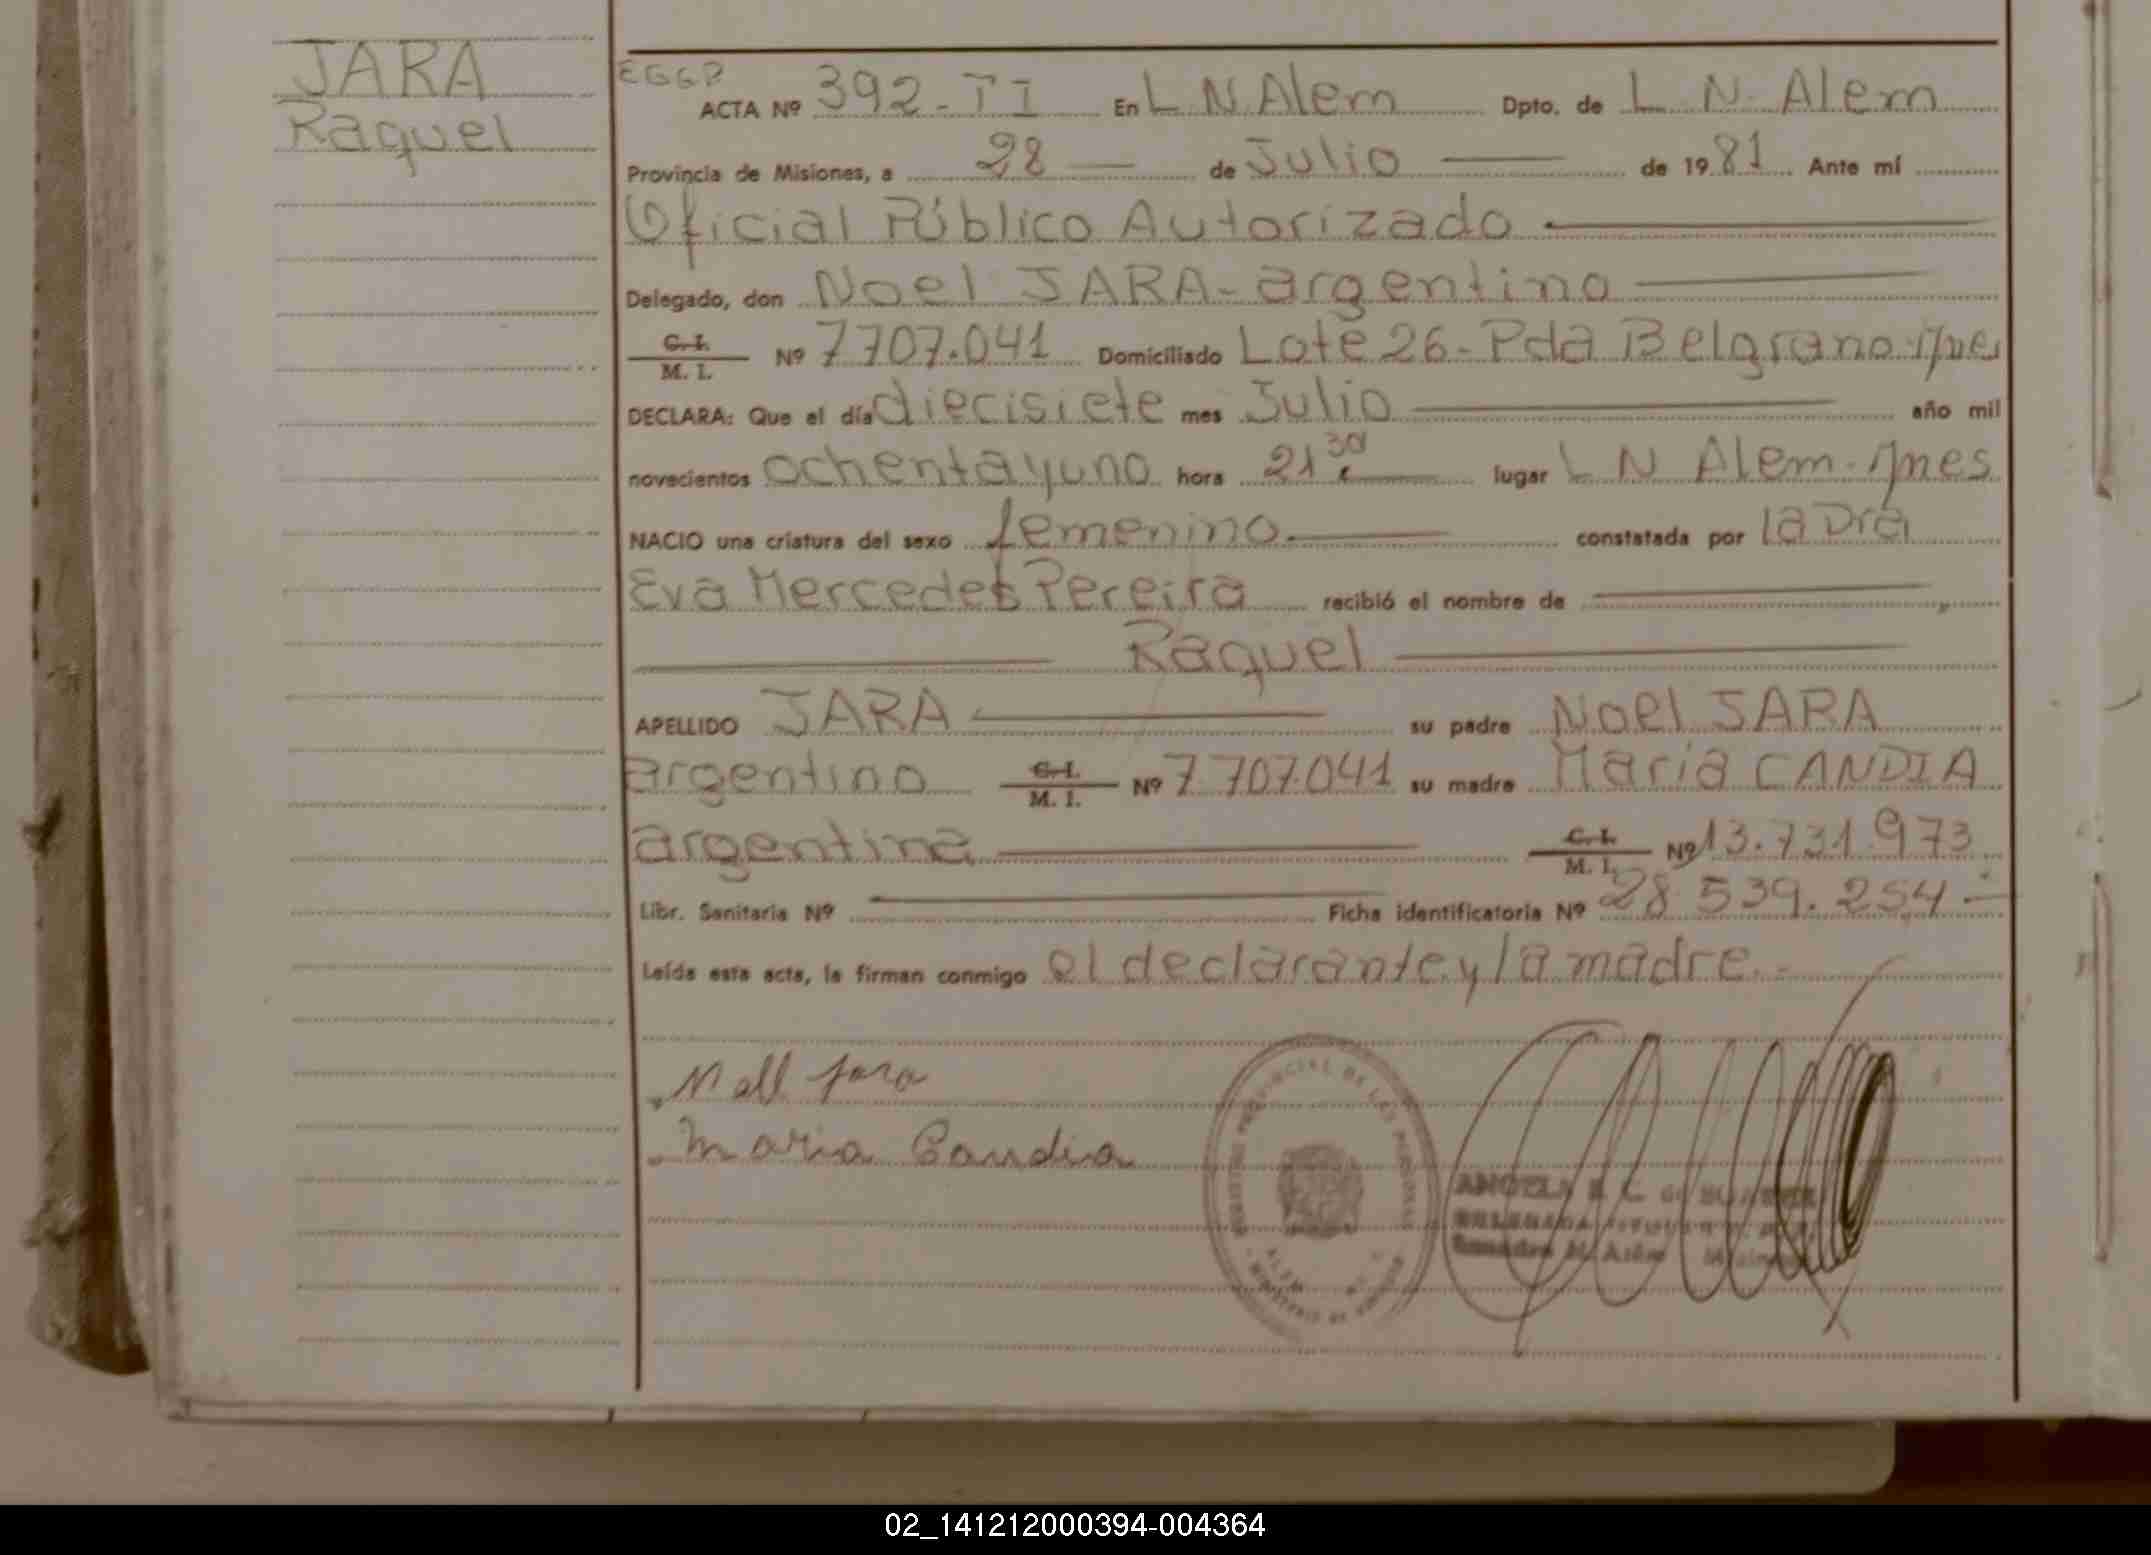 JARA
Raquel
EGGP
ACTA Nº 392-TI En L N Alem Dpto. de L N. Alem
Provincia de Misiones, a 28 de Julio de 1981 Ante mí
Oficial Público Autorizado
Delegado, don Noel JARA-argentino
C. I. / M. I. Nº 7707.041 Domiciliado Lote 26-Pda Belgrano
DECLARA: Que el día diecisiete mes Julio año mil
novecientos ochentayuno hora 21 30 lugar L N Alem-Mnes
NACIO una criatura del sexo femenino constatada por la Dra
Eva Mercedes Pereira recibió el nombre de
Raquel
APELLIDO JARA su padre Noel JARA
argentino C. I. / M. I. Nº 7707.041 su madre Maria CANDIA
argentina C. I. / M. I. Nº 13.731.973
Libr. Sanitaria Nº Ficha identificatoria Nº 28.539.254
Leída esta acta, la firman conmigo el declarante y la madre
Noll Jara
Maria Candia
PROVINCIAL DE LAS PERSONAS
ALEM
MINISTERIO DE
ANGELA E. C. de
DELEGADA TITULAR
Leandro N. Alem
02_141212000394-004364